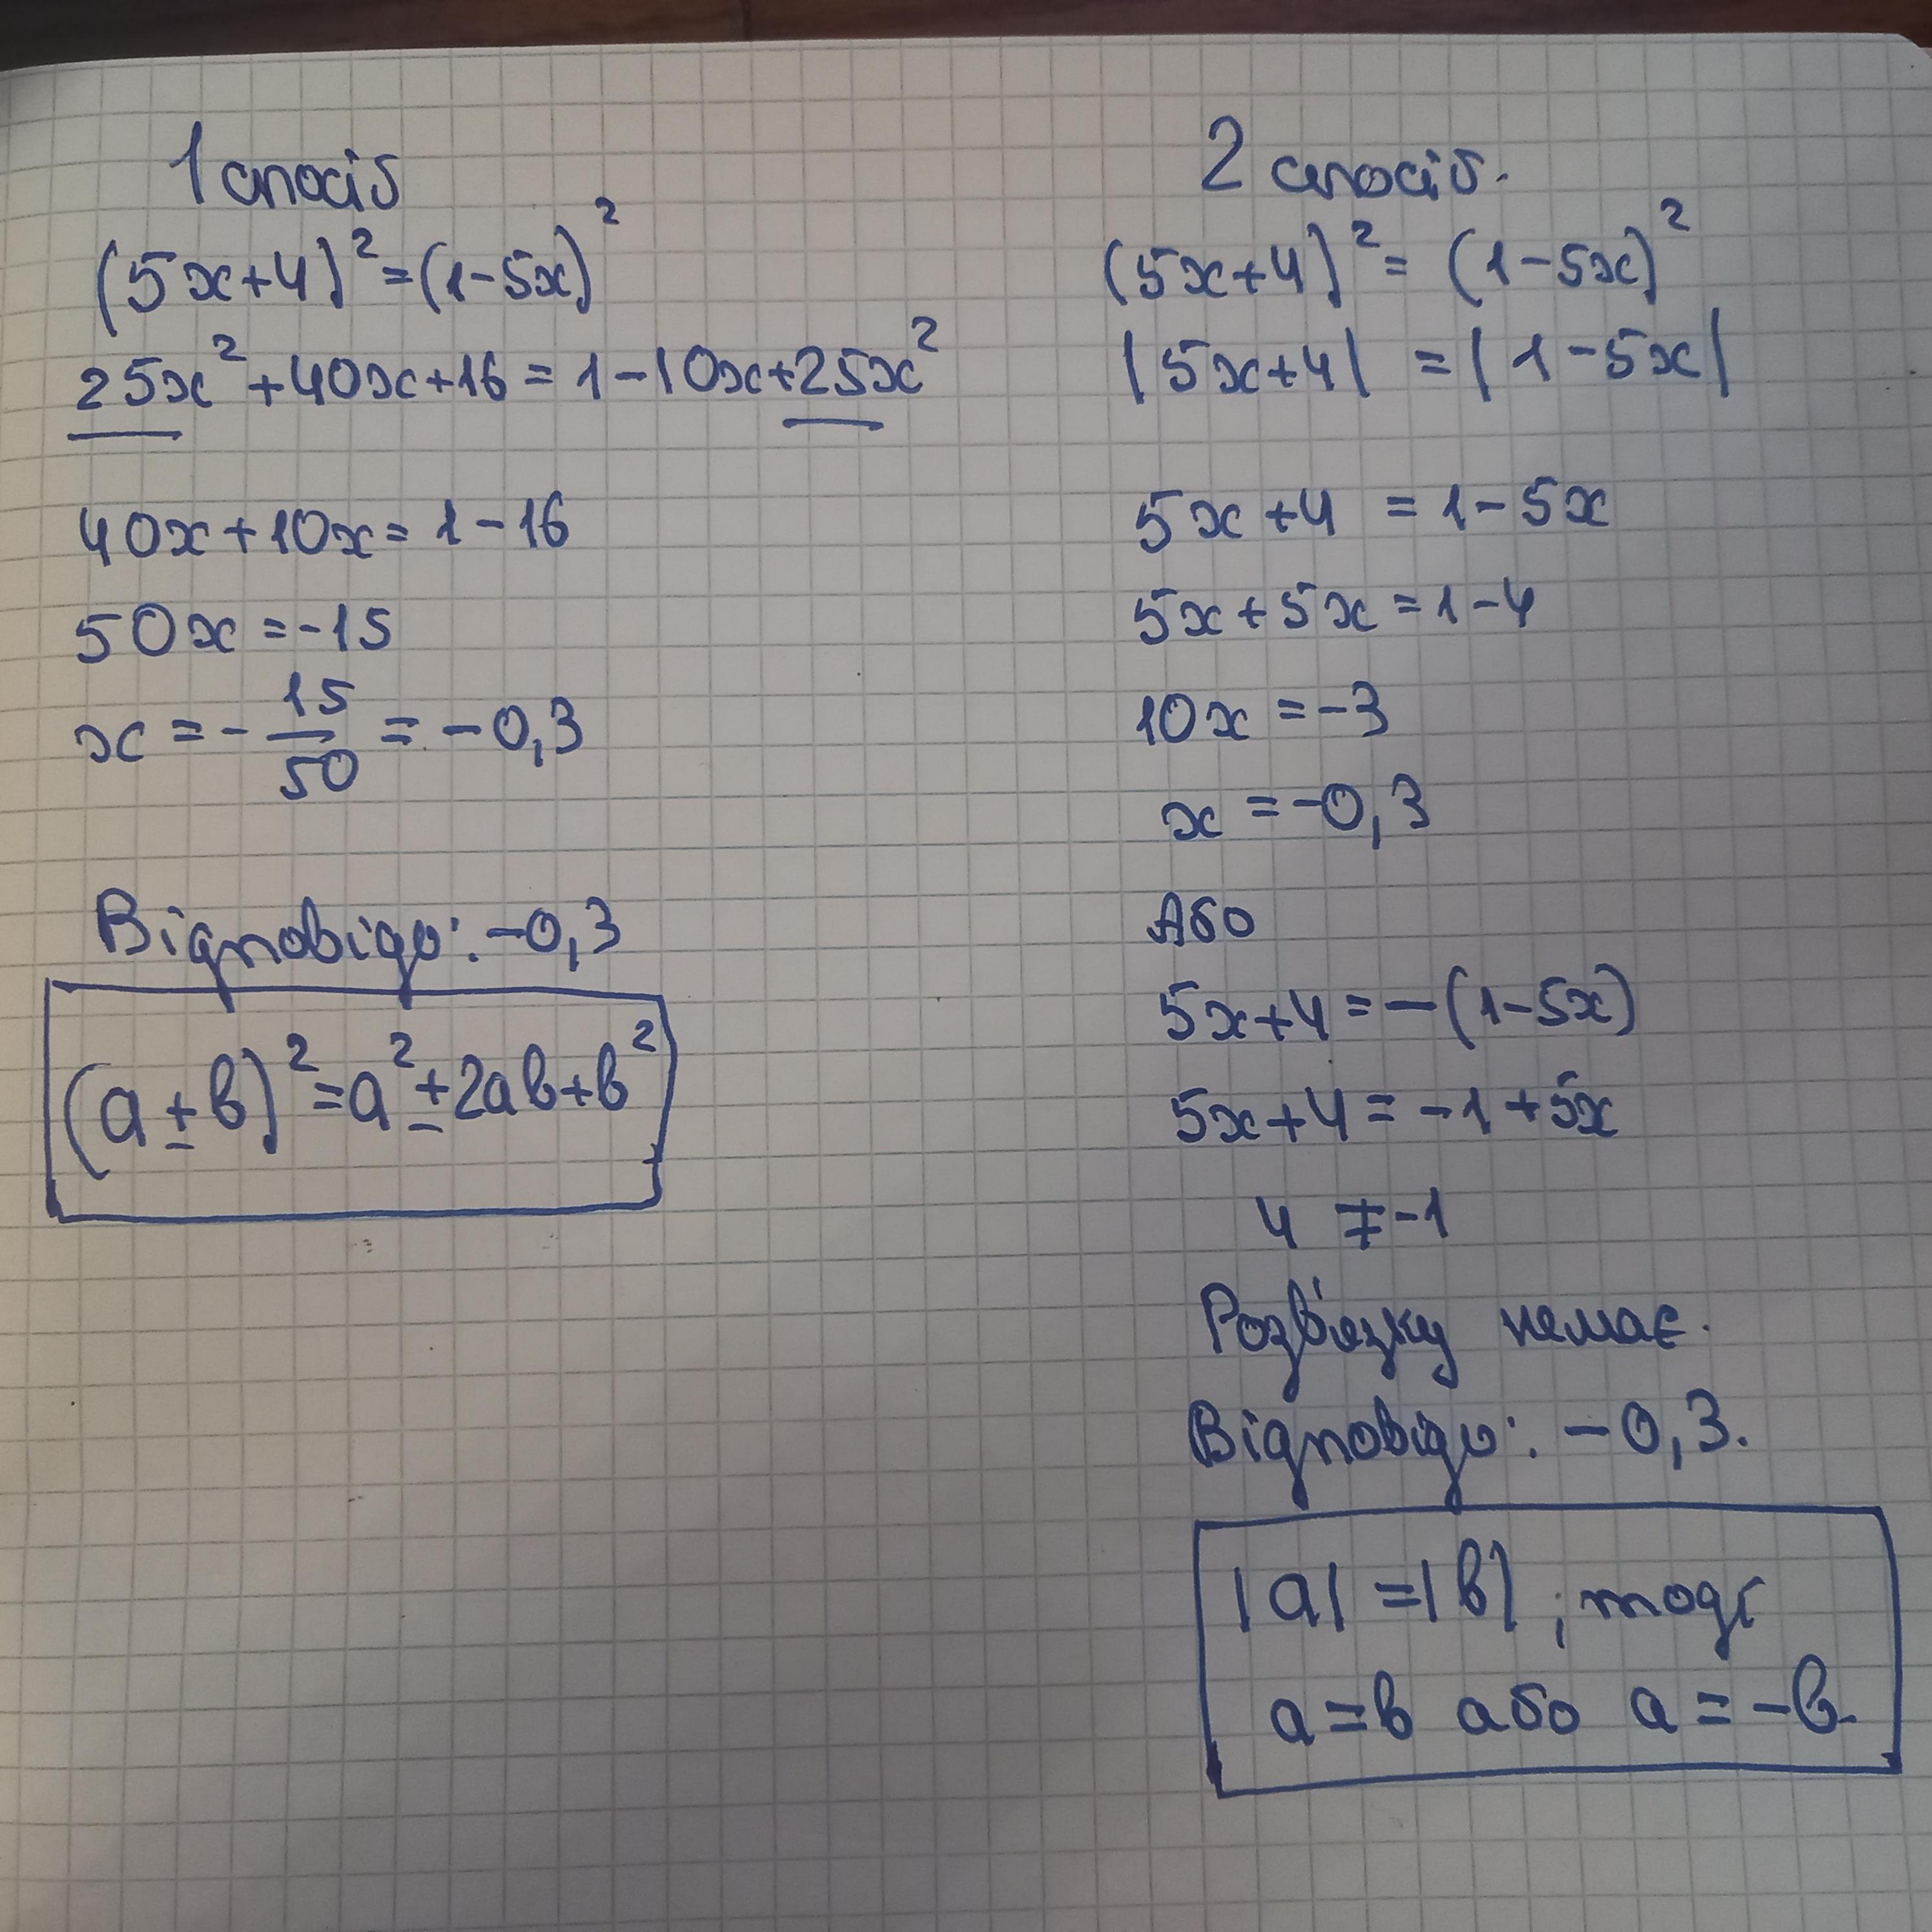 1 спосіб
(5x+4)²=(1-5x)²
25x²+40x+16=1-10x+25x²
40x+10x=1-16
50x=-15
x=-15/50=-0,3
Відповідь: -0,3
(a±b)²=a²±2ab+b²
2 спосіб.
(5x+4)²=(1-5x)²
|5x+4|=|1-5x|
5x+4=1-5x
5x+5x=1-4
10x=-3
x=-0,3
Або
5x+4=-(1-5x)
5x+4=-1+5x
4≠-1
Розв'язку немає.
Відповідь: -0,3.
|a|=|b|, тоді
a=b або a=-b.